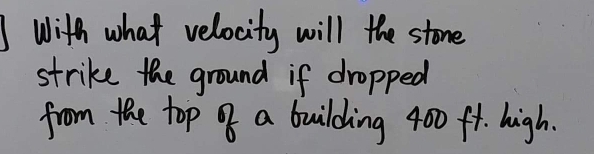 ] With what velocity will the stone
strike the ground if dropped
from the top of a building 400 ft. high.